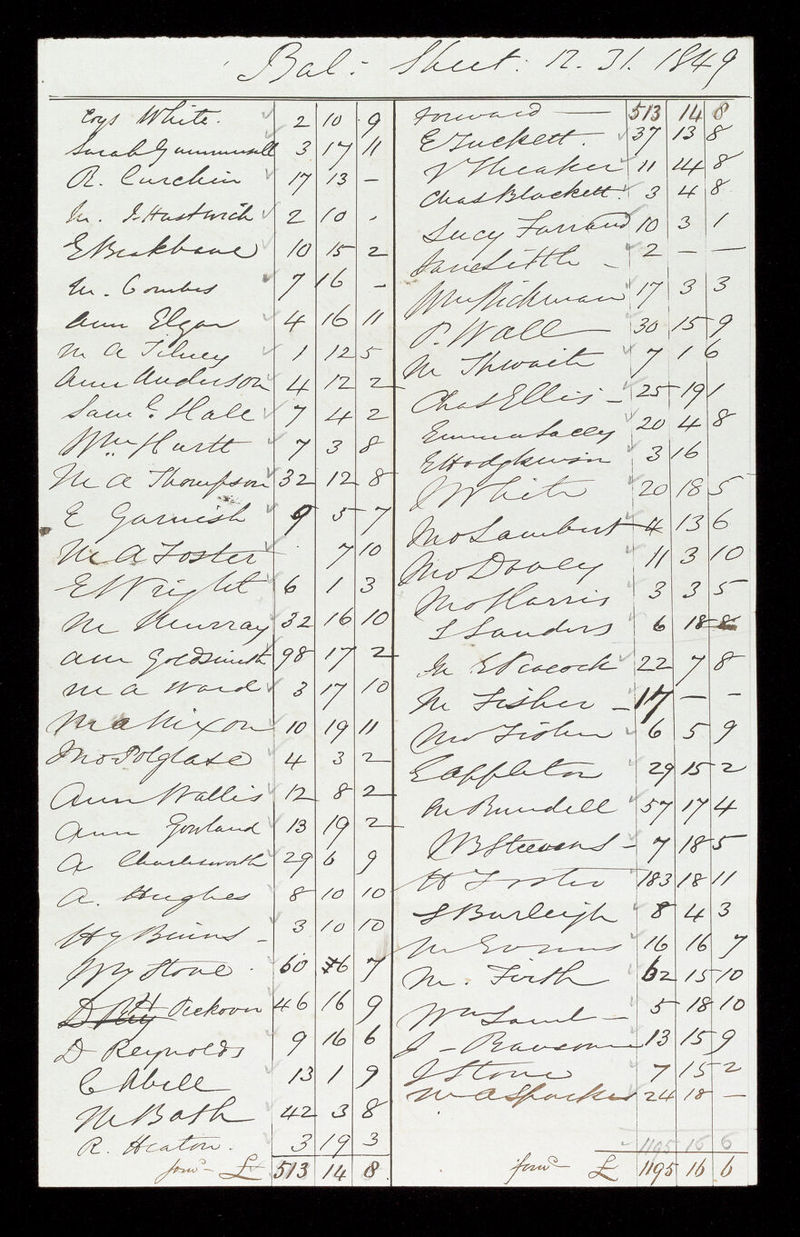 Bal: Sheet: 12. 31. 1849
White. 2 10 9
Sarah 3 17 11
R. Curchin 17 13 -
M. 2 10 -
E Beakbane 10 15 2
M. Combes 7 16 -
Ann Elgar 4 16 11
M A Tilney 1 12 5
Ann Anderson 4 12 2
Saml. Hall 7 4 2
Wm. Hartt 7 3 8
M A Thompson 32 12 8
E Garnish 9 5 7
M A Foster 7 10
E Wright 6 1 3
M Murray 32 16 10
Ann Goldsmith 98 17 2
M A Ward 3 17 10
M A Nixon 10 19 11
Jno Polglase 4 3 2
Ann Wallis 12 8 2
Ann Gowland 13 19 2
A Charlesworth 29 6 9
A. Hughes 8 10 10
Hy Binns - 3 10 10
Stone 60 16 7
Peckover 46 16 9
D Reynolds 9 16 6
C Abell 13 1 9
M Bath 42 3 8
R. Heaton. 3 19 3
forwd - £ 513 14 8
Forward - 513 14 8
E Tuckett. 37 13 8
Theaker 11 14 8
Chas Blackett. 3 4 8
Lucy Farrand 10 3 1
Jane Little - 2 - -
Wm Rickman 17 3 3
P. Wall 30 15 9
M Thwaite 7 1 6
Chas Ellis - 25 19 1
Emma Lacey 20 4 8
E Hodgkinson 3 16
J White 20 18 5
Jno Lambert 4 13 6
Jno Dovey 11 3 10
Jno Harris 3 3 5
S Sanders 6 18 8
M E Peacock 22 7 8
M Fisher - 17 - -
Jno Fisher 6 5 9
E Appleton 29 15 2
M Rundell 57 17 4
W B Steevens - 7 18 5
H Foster 183 18 11
S Burleigh 8 4 3
M Evans 16 16 7
M. Firth 62 15 10
Wm Lamb - 5 18 10
J - Ransome 13 15 9
J Stone 7 15 2
M A Sparkes 24 18 -
1195 16 6
forwd - £ 1195 16 6